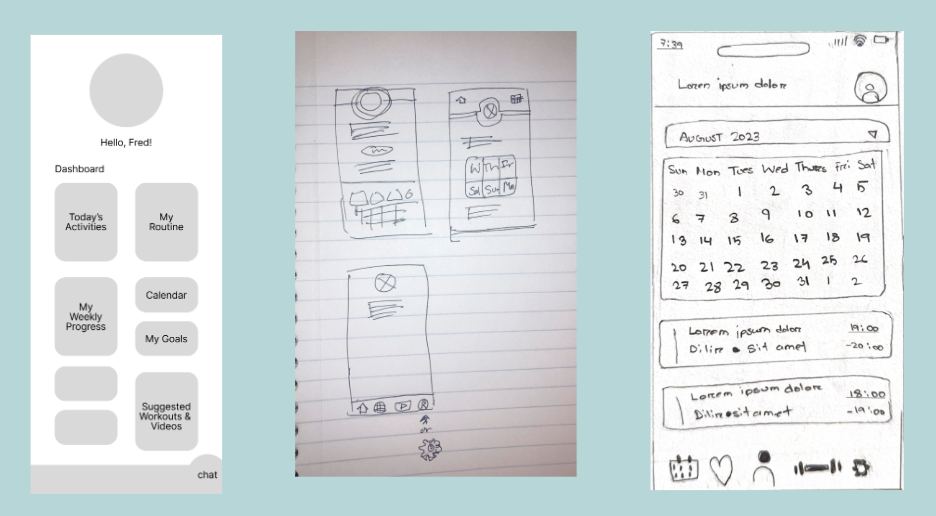 Hello, Fred!
Dashboard
Today's
Activities
My
Routine
My
Weekly
Progress
Calendar
My Goals
Suggested
Workouts &
Videos
chat
W Th Fr
Sat Sun Mo
or
7:39
Lorem ipsum dolore
AUGUST 2023
Sun Mon Tues Wed Thures Fri Sat
30 31 1 2 3 4 5
6 7 8 9 10 11 12
13 14 15 16 17 18 19
20 21 22 23 24 25 26
27 28 29 30 31 1 2
Lorem ipsum dolor 19:00
Sit amet -20:00
Lorem ipsum dolore 18:00
sit amet -19:00